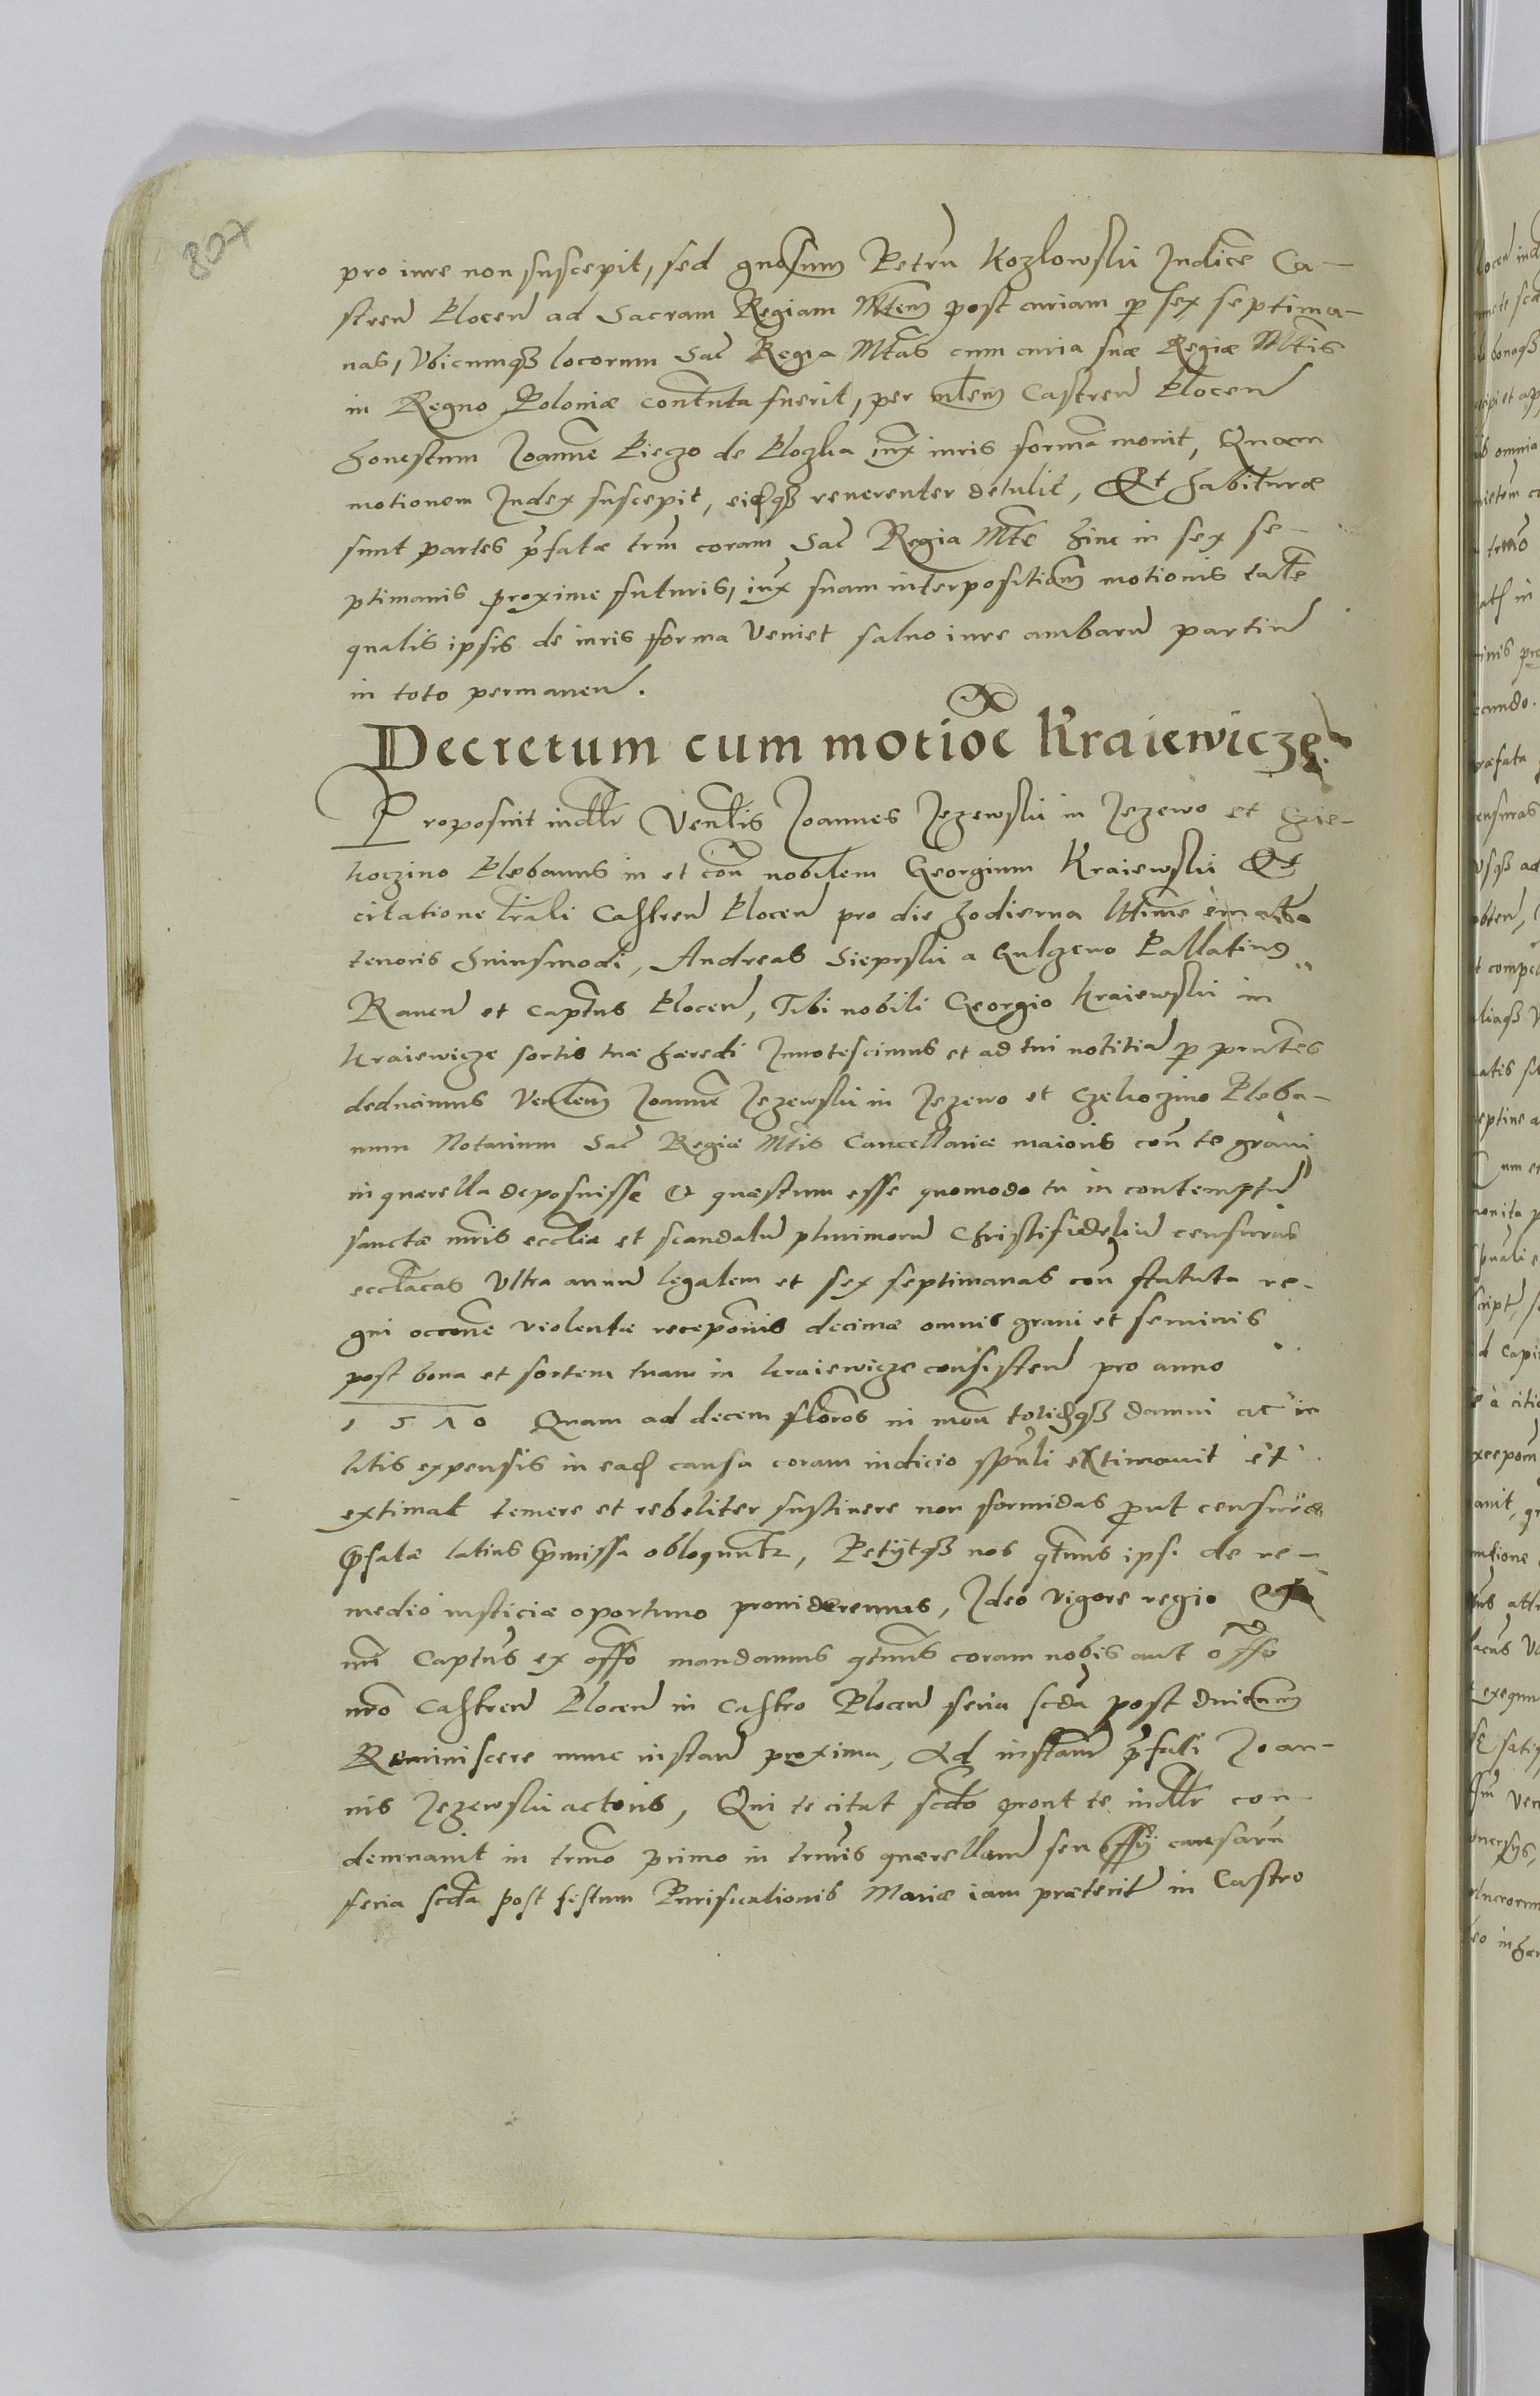 807
pro iure non suscepit, sed gnosum Petrū Kozlowski Iudicē Ca-
stren Plocen ad Sacram Regiam Mtem post curiam p sex septima-
nas, Vbicumqȝ locorum Sac Regia Mtas cum curia suæ Regiæ Mtis
in Regno Poloniæ contenta fuerit, per mlem Castren Plocen
honestum Joannē Pieczo de iux iuris formā mouit, Quam
motionem Iudex suscepit, eidqȝ reuerenter detulit, Et habituræ
sunt partes pfatæ trm coram Sac Regia Mte hinc in sex se-
ptimanis proxime futuris, iux suam interpositiom motionis tale
qualis ipsis de iuris forma Veniet saluo iure ambarū partiū
in toto permanen.
Decretum cum motioē Kraiewicze.
Proposuit iudllr Venlis Joannes Jezewski in Jezewo et Czie-
koczino Plebanus in et con nobilem Georgium Kraiewski Et
citatione lrali Castren Plocen pro die hodierna lltime emanta
tenoris huiusmodi, Andreas Sieprski a Gulczewo Pallatinꝰ
Rauen et Captus Plocen, Tibi nobili Georgio Kraiewski in
Kraiewicze sortis tuæ hæredi Innotescimus et ad tui notitiā p pntes
deducimus Venlem Joannē Jezewski in Jezewo et Czekoczino Pleba-
num Notarium Sac Regiæ Mtis Cancellariæ maioris con te graui
in quærella deposuisse & quæstum esse quomodo tu in contemptū
sanctæ mris eccliæ et scandalū plurimorū Christifideliū censuras
eccltacas Vltra annū legalem et sex septimanas con statuta re-
gni occone violentæ recepōnis decimæ omnis grani et seminis
post bona et sortem tuam in Kraiewicze consisten pro anno
1510 Quam ad decem flōros in mon totidqȝ damni ac in
litis expensis in ead causa coram iudicio spuli extimauit et
extimat temere et rebeliter sustinere non formidas put censuræ
pfatæ latius pmissa obloquntr, Petijtqȝ nos qtenus ipsi de re-
medio iusticiæ oportuno prouideremus, Ideo vigore regio &
nri Captus ex offo mandamus qtenus coram nobis aut offo
nro Castren Plocen in Castro Plocen feria scda post dnicam
Reminiscere nunc instan proxima, Ad instam pfati Joan-
nis Jezewski actoris, Qui te citat scdo prout te iudllr con-
demnauit in trmo primo in trmis quærellarū seu offij causarū
feria scda post festum Purificationis Mariæ iam præterit in Castro